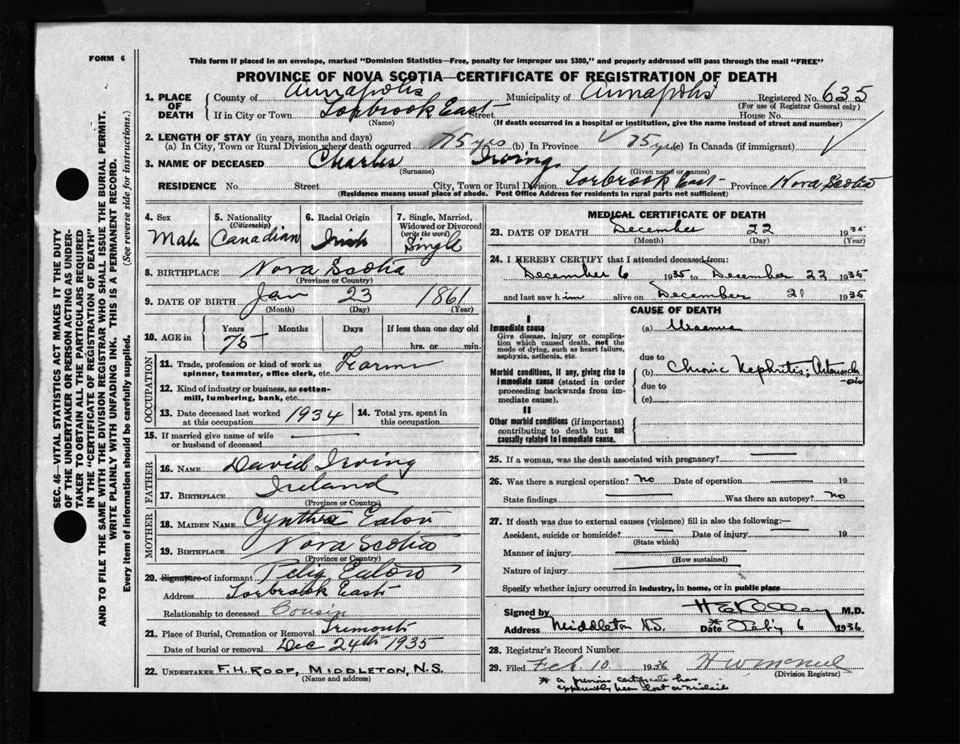 FORM 6
This form if placed in an envelope, marked "Dominion Statistics—Free, penalty for improper use $300," and properly addressed will pass through the mail "FREE"
PROVINCE OF NOVA SCOTIA—CERTIFICATE OF REGISTRATION OF DEATH
1. PLACE OF DEATH
County of Annapolis Municipality of Annapolis Registered No. 635
(For use of Registrar General only)
If in City or Town Torbrook East Street House No.
(Name) (If death occurred in a hospital or institution, give the name instead of street and number)
2. LENGTH OF STAY (in years, months and days)
(a) In City, Town or Rural Division where death occurred 75 yrs (b) In Province 75 yrs (c) In Canada (if immigrant)
3. NAME OF DECEASED Charles Irving
(Surname) (Given name or names)
RESIDENCE No. Street City, Town or Rural Division Torbrook East Province Nova Scotia
(Residence means usual place of abode. Post Office Address for residents in rural parts not sufficient)
4. Sex
Male
5. Nationality
(Citizenship)
Canadian
6. Racial Origin
Irish
7. Single, Married, Widowed or Divorced
(write the word)
Single
8. BIRTHPLACE Nova Scotia
(Province or Country)
9. DATE OF BIRTH Jan 23 1861
(Month) (Day) (Year)
10. AGE in
Years Months Days If less than one day old
75 hrs. or min.
OCCUPATION
11. Trade, profession or kind of work as
spinner, teamster, office clerk, etc. Farmer
12. Kind of industry or business, as cotton-
mill, lumbering, bank, etc.
13. Date deceased last worked
at this occupation 1934
14. Total yrs. spent in
this occupation
15. If married give name of wife
or husband of deceased
FATHER
16. NAME David Irving
17. BIRTHPLACE Ireland
(Province or Country)
MOTHER
18. MAIDEN NAME Cynthia Eaton
19. BIRTHPLACE Nova Scotia
(Province or Country)
20. Signature of informant Eaton
Address Torbrook East
Relationship to deceased Cousin
21. Place of Burial, Cremation or Removal Tremont
Date of burial or removal Dec 24th 1935
22. UNDERTAKER F. H. ROOP, MIDDLETON, N.S.
(Name and address)
MEDICAL CERTIFICATE OF DEATH
23. DATE OF DEATH December 22 1935
(Month) (Day) (Year)
24. I HEREBY CERTIFY that I attended deceased from:
December 6 1935 to December 22 1935
and last saw him alive on December 21 1935
CAUSE OF DEATH
I
Immediate cause
Give disease, injury or complication which caused death, not the mode of dying, such as heart failure, asphyxia, asthenia, etc.
(a) Uraemia
due to
Morbid conditions, if any, giving rise to immediate cause (stated in order proceeding backwards from immediate cause).
(b) Chronic Nephritis;
due to
(c)
II
Other morbid conditions (if important) contributing to death but not causally related to immediate cause.
25. If a woman, was the death associated with pregnancy?
26. Was there a surgical operation? No Date of operation 19
State findings Was there an autopsy? No
27. If death was due to external causes (violence) fill in also the following:—
Accident, suicide or homicide? Date of injury 19
(State which)
Manner of injury
(How sustained)
Nature of injury
Specify whether injury occurred in Industry, in home, or in public place
Signed by M.D.
Address Middleton N.S. Date 6 1936
28. Registrar's Record Number
29. Filed Feb. 10 1936
(Division Registrar)
* a previous certificate has
apparently been lost or mislaid
SEC. 46—VITAL STATISTICS ACT MAKES IT THE DUTY
OF THE UNDERTAKER OR PERSON ACTING AS UNDER-
TAKER TO OBTAIN ALL THE PARTICULARS REQUIRED
IN THE "CERTIFICATE OF REGISTRATION OF DEATH"
AND TO FILE THE SAME WITH THE DIVISION REGISTRAR WHO SHALL ISSUE THE BURIAL PERMIT.
WRITE PLAINLY WITH UNFADING INK. THIS IS A PERMANENT RECORD.
Every item of information should be carefully supplied. (See reverse side for instructions.)